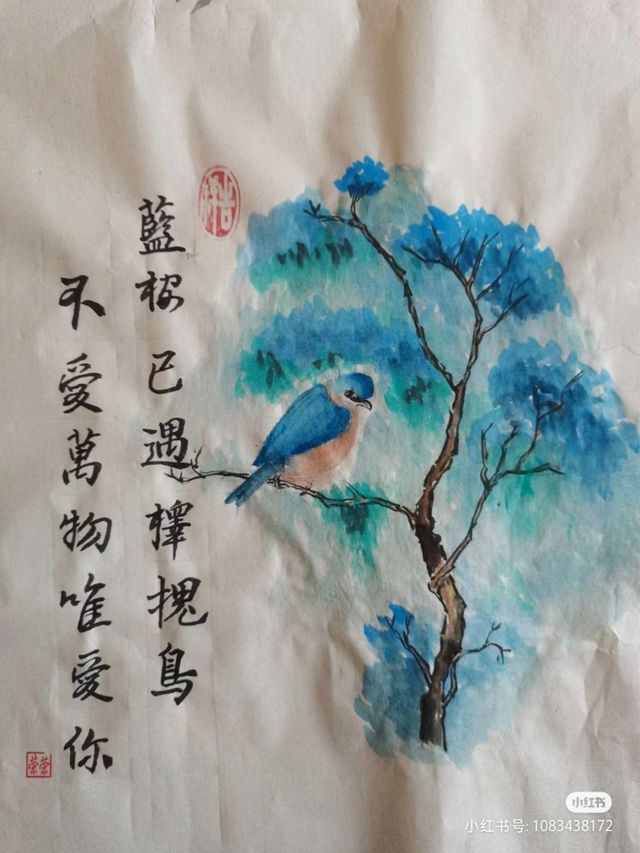 吉祥
藍桉已遇釋槐鳥
不愛萬物唯愛你
榮榮
小红书
小红书号: 1083438172